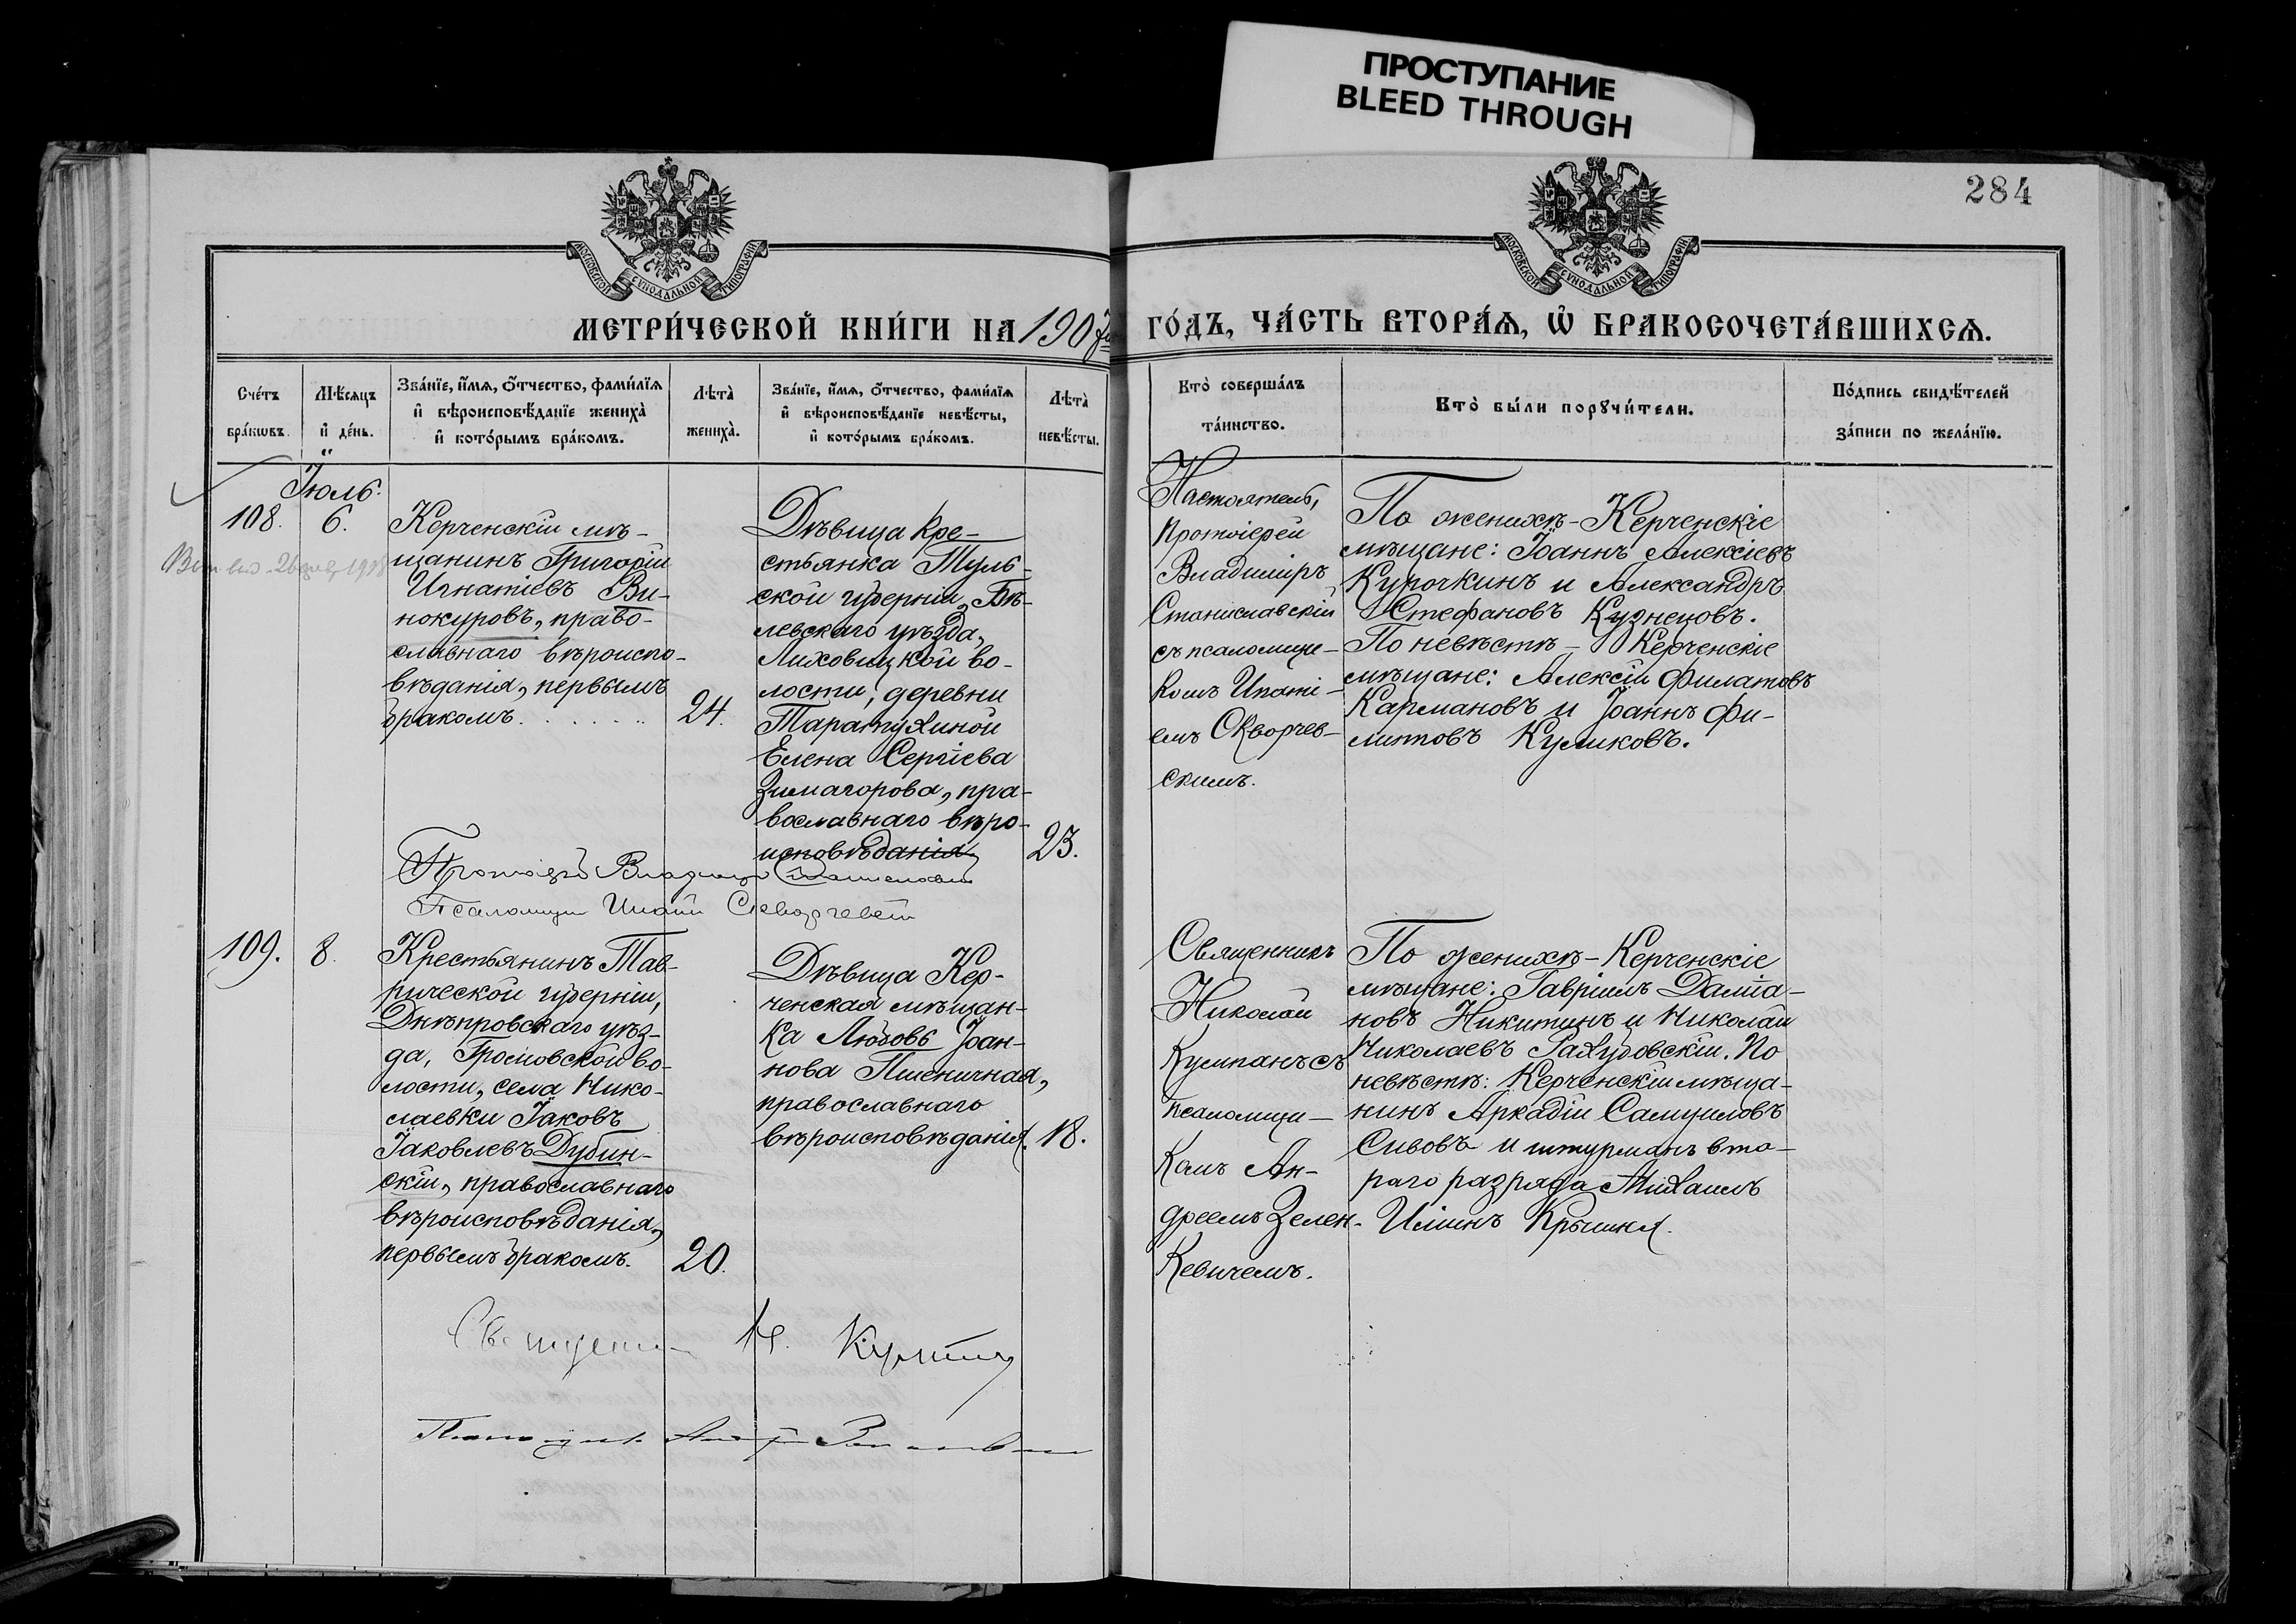 ПРОСТУПАНИЕ
BLEED THROUGH
284
МОСКОВСКОЙ СѴНОДАЛЬНОЙ ТИПОГРАФІИ
МОСКОВСКОЙ СѴНОДАЛЬНОЙ ТИПОГРАФІИ
МЕТРИ́ЧЕСКОЙ КНИ́ГИ НА 1907
ГО́ДЪ, ЧА́СТЬ ВТОРА́Ѧ, Ѡ҆ БРАКОСОЧЕТА́ВШИХСѦ.
Сче́тъ
бра́кѡвъ.
Мѣ́сяцъ
и҆ де́нь.
Зва́нїе, и҆́мѧ, ѻ҆́тчество, фами́лїѧ
и҆ вѣроисповѣ́данїе жениха̀
и҆ кото́рымъ бра́комъ.
Лѣта̀
жениха̀.
Зва́нїе, и҆́мѧ, ѻ҆́тчество, фами́лїѧ
и҆ вѣроисповѣ́данїе невѣ́сты,
и҆ кото́рымъ бра́комъ.
Лѣта̀
невѣ́сты.
Кто̀ соверша́лъ
та́инство.
Кто̀ бы́ли порꙋчи́тели.
По́дпись свидѣ́телей
за́писи по жела́нїю.
Іюль.
108.
6.
Керченскій мѣ-
щанинъ Григорій
Игнатіевъ Ви-
нокуровъ, право-
славнаго вѣроиспо-
вѣданія, первымъ
бракомъ. . . . . . .
24.
Дѣвица кре-
стьянка Туль-
ской губерніи, Бѣ-
левскаго уѣзда,
Лиховицкой во-
лости, деревни
Таратухиной
Елена Сергіева
Зимагорова, пра-
вославнаго вѣро-
исповѣданія,
23.
Настоятель,
Протоіерей
Владиміръ
Станиславскій
съ псаломщи-
комъ Ипаті-
емъ Скворчев-
скимъ.
По женихѣ - Керченскіе
мѣщане: Іоаннъ Алексіевъ
Курочкинъ и Александръ
Стефановъ Кузнецовъ.
По невѣстѣ - Керченскіе
мѣщане: Алексій Филатовъ
Кармановъ и Іоаннъ Фи-
липповъ Куликовъ.
Протоіерей Владиміръ Станиславскій
Псаломщикъ Ипатій Скворчевскій
109.
8.
Крестьянинъ Тав-
рической губерніи,
Днѣпровскаго уѣз-
да, Громовской во-
лости, села Нико-
лаевки Іаковъ
Іаковлевъ Дубин-
скій, православнаго
вѣроисповѣданія,
первымъ бракомъ.
20.
Дѣвица Кер-
ченская мѣщан-
ка Любовь Іоан-
нова Пшеничная,
православнаго
вѣроисповѣданія.
18.
Священникъ
Николай
Кумпанъ съ
псаломщи-
комъ Ан-
дреемъ Зелен-
кевичемъ.
По женихѣ - Керченскіе
мѣщане: Гавріилъ Даміа-
новъ Никитинъ и Николай
Николаевъ Рахубовскій. По
невѣстѣ: Керченскій мѣща-
нинъ Аркадій Самуиловъ
Сивовъ и штурманъ вто-
раго разряда Михаилъ
Ильинъ Крыших.
Священникъ Н. Кумпанъ